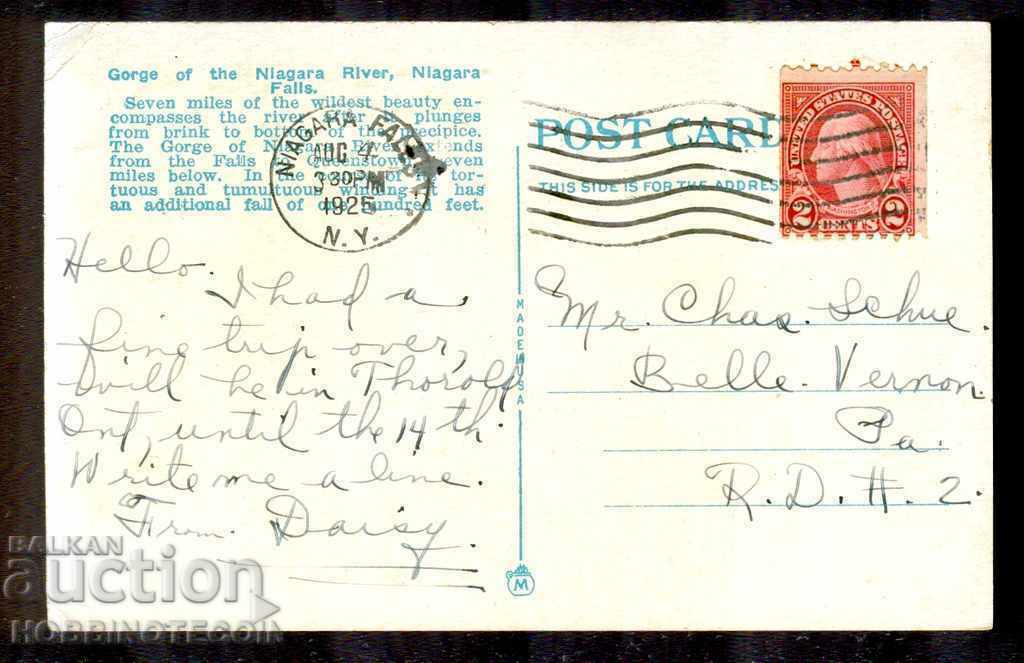 Gorge of the Niagara River, Niagara
Falls.
Seven miles of the wildest beauty en-
compasses the river after it plunges
from brink to bottom of the precipice.
The Gorge of Niagara River extends
from the Falls to Queenstown, seven
miles below. In the course of its tor-
tuous and tumultuous winding it has
an additional fall of one hundred feet.
NIAGARA FALLS
AUG 4
330PM
1925
N.Y.
POST CARD
THIS SIDE IS FOR THE ADDRESS
UNITED STATES POSTAGE
2 CENTS 2
Hello.
I had a
fine trip over,
will be in Thorold
Ont, until the 14th.
Write me a line.
From Daisy.
MADE USA
M
Mr. Chas. Schue.
Belle. Vernon.
Pa.
R.D.#.2.
BALKAN
auction
HOBBINOTECOIN